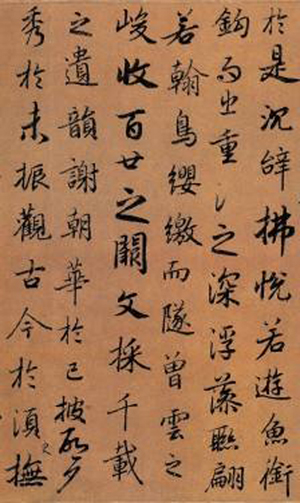 於是沉辝拂悅若遊魚銜
鉤而出重氵之深浮藻聯翩
若翰鳥纓繳而隧曾雲之
峻收百世之闕文採千載
之遺韻謝朝華於已披啟夕
秀於未振觀古今於湏臾撫